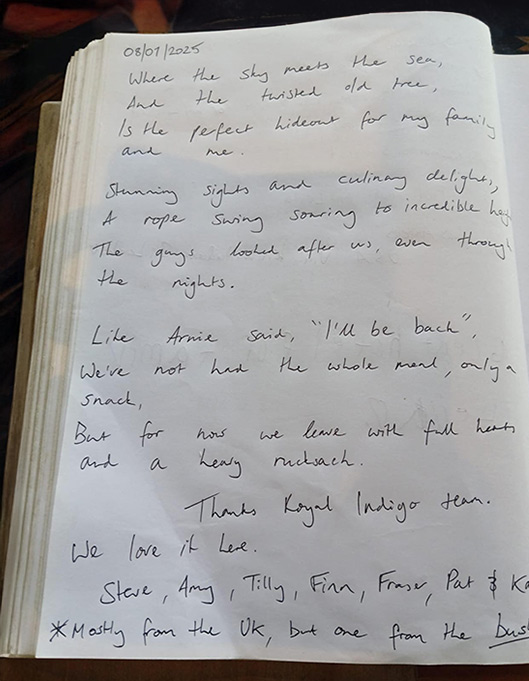 08/01/2025
Where the sky meets the sea,
And the twisted old tree,
Is the perfect hideout for my family
and me.
Stunning sights and culinary delights,
A rope swing soaring to incredible
The guys looked after us, even through
the nights.
Like Arnie said, "I'll be back",
We've not had the whole meal, only a
snack,
But for now we leave with full hearts
and a heavy rucksack.
Thanks Royal Indigo team.
We love it here.
Steve, Amy, Tilly, Finn, Fraser, Pat &
*Mostly from the UK, but one from the